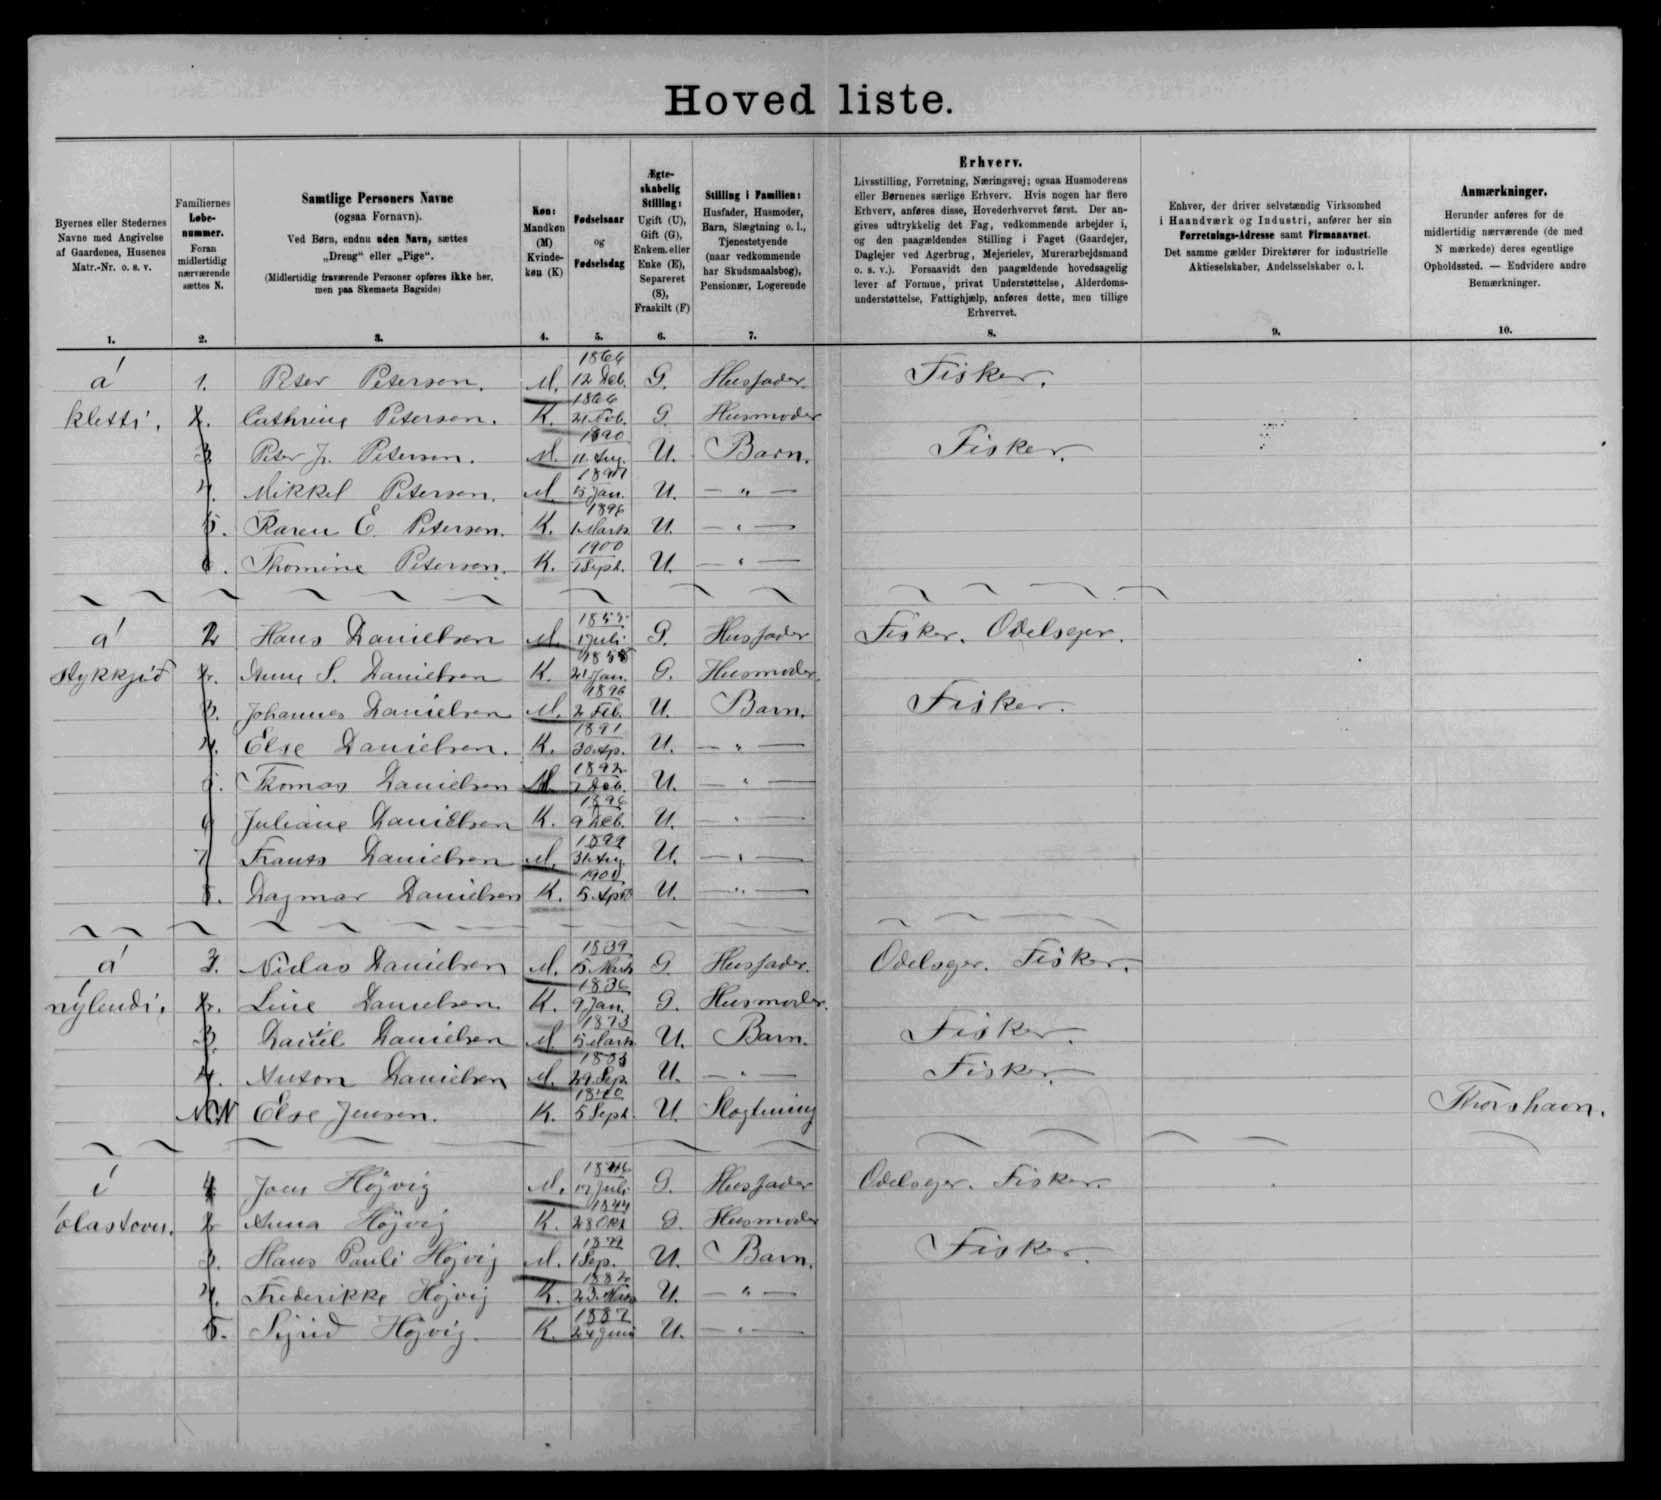 Hoved liste.
Byernes eller Stedernes Navne med Angivelse af Gaardenes, Husenes Matr.-Nr. o. s. v.
Familiernes Løbe-nummer. Foran midlertidig nærværende sættes N.
Samtlige Personers Navne (ogsaa Fornavn). Ved Børn, endnu uden Navn, sættes „Dreng" eller „Pige". (Midlertidig fraværende Personer opføres ikke her, men paa Skemaets Bagside)
Køn: Mandkøn (M) Kvinde-køn (K)
Fødselsaar og Fødselsdag
Ægte-skabelig Stilling: Ugift (U), Gift (G), Enkem. eller Enke (E), Separeret (S), Fraskilt (F)
Stilling i Familien: Husfader, Husmoder, Barn, Slægtning o. l., Tjenestetyende (naar vedkommende har Skudsmaalsbog), Pensionær, Logerende
Erhverv. Livsstilling, Forretning, Næringsvej; ogsaa Husmoderens eller Børnenes særlige Erhverv. Hvis nogen har flere Erhverv, anføres disse, Hovederhvervet først. Der angives udtrykkelig det Fag, vedkommende arbejder i, og den paagældendes Stilling i Faget (Gaardejer, Daglejer ved Agerbrug, Mejerielev, Murerarbejdsmand o. s. v.). Forsaavidt den paagældende hovedsagelig lever af Formue, privat Understøttelse, Alderdoms-understøttelse, Fattighjælp, anføres dette, men tillige Erhvervet.
Enhver, der driver selvstændig Virksomhed i Haandværk og Industri, anfører her sin Forretnings-Adresse samt Firmanavnet. Det samme gælder Direktører for industrielle Aktieselskaber, Andelsselskaber o. l.
Anmærkninger. Herunder anføres for de midlertidig nærværende (de med N mærkede) deres egentlige Opholdssted. — Endvidere andre Bemærkninger.
1. 2. 3. 4. 5. 6. 7. 8. 9. 10.
á 1. Peter Petersen. M. 12 Deb. G. Husfader. Fisker.
kletti. 2. Cathrine Petersen. K. 1866 21 Feb. G. Husmoder
3 Peter Jr. Petersen. M. 1890 11. Aug. U. Barn. Fisker.
4. Mikkel Petersen. M. 5 Jan. U. — " —
5. Karen E. Petersen. K. 1 Marts U. — " —
6. Thomine Petersen. K. 1900 1 Sept. U. — " —
á 2 Hans Danielsen M. 1 Juli G. Husfader Fisker. Odelsejer.
stykkjið 2. Anne S. Danielsen K. 1858 21 Jan. G. Husmoder.
3. Johannes Danielsen M. 2 Feb. U. Barn. Fisker.
4. Else Danielsen. K. 1891 30. Ap. U. — " —
5. Thomas Danielsen M. 1892 U. — " —
6 Juliane Danielsen K. 1896 9 Deb. U. — " —
7 Frants Danielsen M. 1899 31. Aug. U. — " —
8. Dagmar Danielsen K. 5 April U. — " —
á 3. Niclas Danielsen M. 1839 5. Marts G. Husfader. Odelsejer. Fisker.
nýlendi. 2. Line Danielsen K. 1836 9 Jan. G. Husmoder.
3. Daniel Danielsen M. 1873 5 Marts U. Barn. Fisker.
4. Anton Danielsen M. 29. Sep. U. — " — Fisker.
N Else Jensen. K. 5 Sept. U. Slægtning Thorshavn.
í 4 Joen Højvig M. 17 Juli G. Husfader Odelsejer. Fisker.
ólastovu. 2 Anna Højvig K. 1844 28 Okt G. Husmoder
3. Hans Pauli Højvig M. 1879 1 Sep. U. Barn. Fisker.
4. Frederikke Højvig K. 1882 23. Marts U. — " —
5. Sigrid Højvig. K. 1887 24 Juni U. — " —